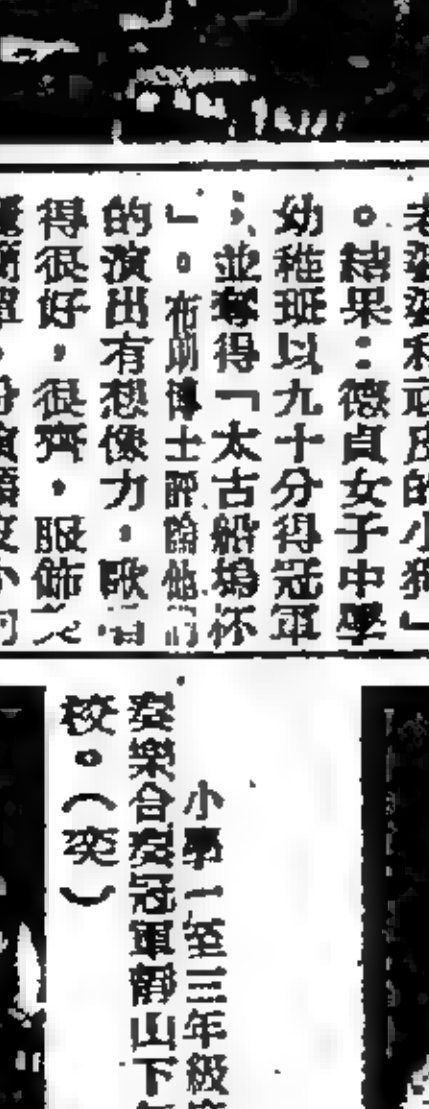 老婆婆和頑皮的小狗」
。結果：德貞女子中學
幼稚班以九十分得冠軍
；並奪得「太古船塢杯
」。布朗博士評論他們
的演出有想像力，歌唱
得很好，很齊，服飾又
小學一至三年級
奏樂合奏冠軍靜山下午
校。（奕）